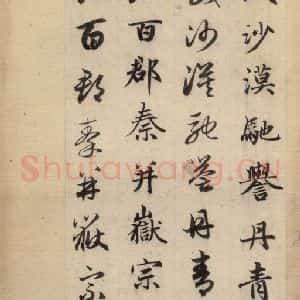 沙漠馳譽丹青
沙漠馳譽丹青
百郡秦并嶽宗
百郡秦并嶽宗
Shufawang.CN